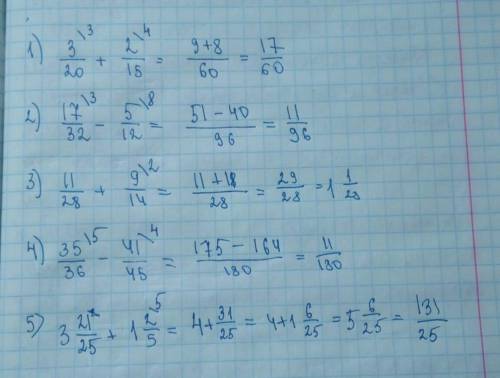 1) 3/20 \3 + 2/15 \4 = (9+8)/60 = 17/60
2) 17/32 \3 − 5/12 \8 = (51−40)/96 = 11/96
3) 11/28 + 9/14 \2 = (11+18)/28 = 29/28 = 1 1/28
4) 35/36 \5 − 41/45 \4 = (175−164)/180 = 11/180
5) 3 21/25 + 1 2/5 \5 = 4+31/25 = 4+1 6/25 = 5 6/25 = 131/25